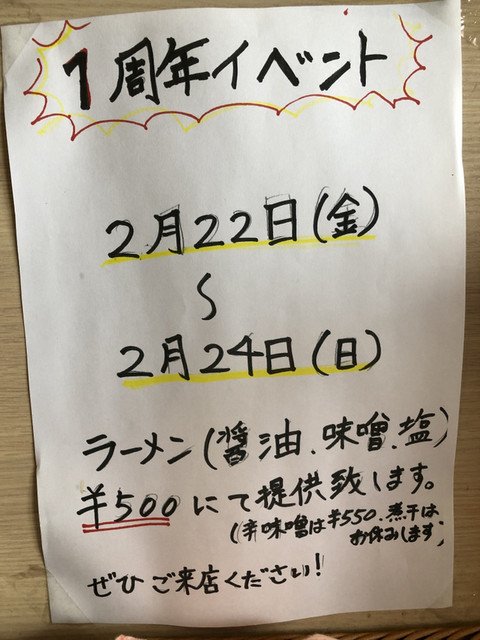 1周年イベント
2月22日(金)
〜
2月24日(日)
ラーメン(醤油、味噌、塩)
¥500にて提供致します。
(辛味噌は¥550、煮干は
お休みします)
ぜひご来店ください!